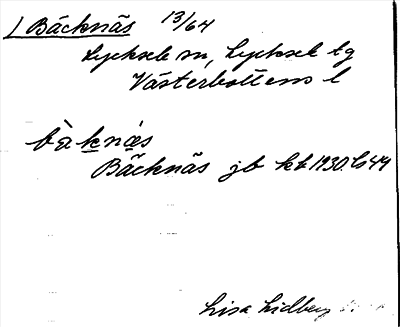 / Bäcknäs 13/64
Lycksele sn, Lycksele tg
Västerbottens l
bàknás
Bäcknäs jb kt 1930. ls 49
Lisa Lidberg